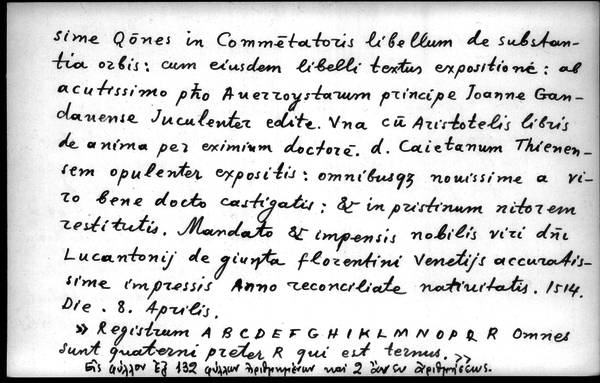 sime Qōnes in Commētatoris libellum de substan-
tia orbis: cum eiusdem libelli textus expositionē: ab
acutissimo pħo Auerroystarum principe Joanne Gan-
dauense luculenter edite. Vna cū Aristotelis libris
de anima per eximium doctorē. d. Caietanum Thienen-
sem opulenter expositis: omnibusqʒ nouissime a vi-
ro bene docto castigatis: & in pristinum nitorem
restitutis. Mandato & impensis nobilis viri dñi
Lucantonij de giunta florentini Venetijs accuratis-
sime impressis Anno reconciliate natiuitatis. 1514.
Die . 8. Aprilis.
» Registrum A B C D E F G H I K L M N O P Q R Omnes
sunt quaterni preter R qui est ternus. »
Εἰς φύλλον ἐξ 132 φύλλων ἠριθμημένων καὶ 2 ἄνευ ἀριθμήσεως.